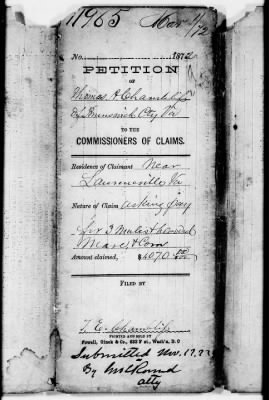 11965 Mar 1/72
No. 1872
PETITION
OF
Thomas H Chambliss
Brunswick Cty Va
TO THE
COMMISSIONERS OF CLAIMS.
Residence of Claimant Near
Lawrenceville Va
Nature of Claim asking pay
for 3 Mules
Mares & Corn
Amount claimed, $4070
FILED BY
T. E. Chambliss
PRINTED AND SOLD BY
Powell, Ginck & Co., 632 F st., Wash'n, D. C
Submitted Nov. 17, 73
By
atty